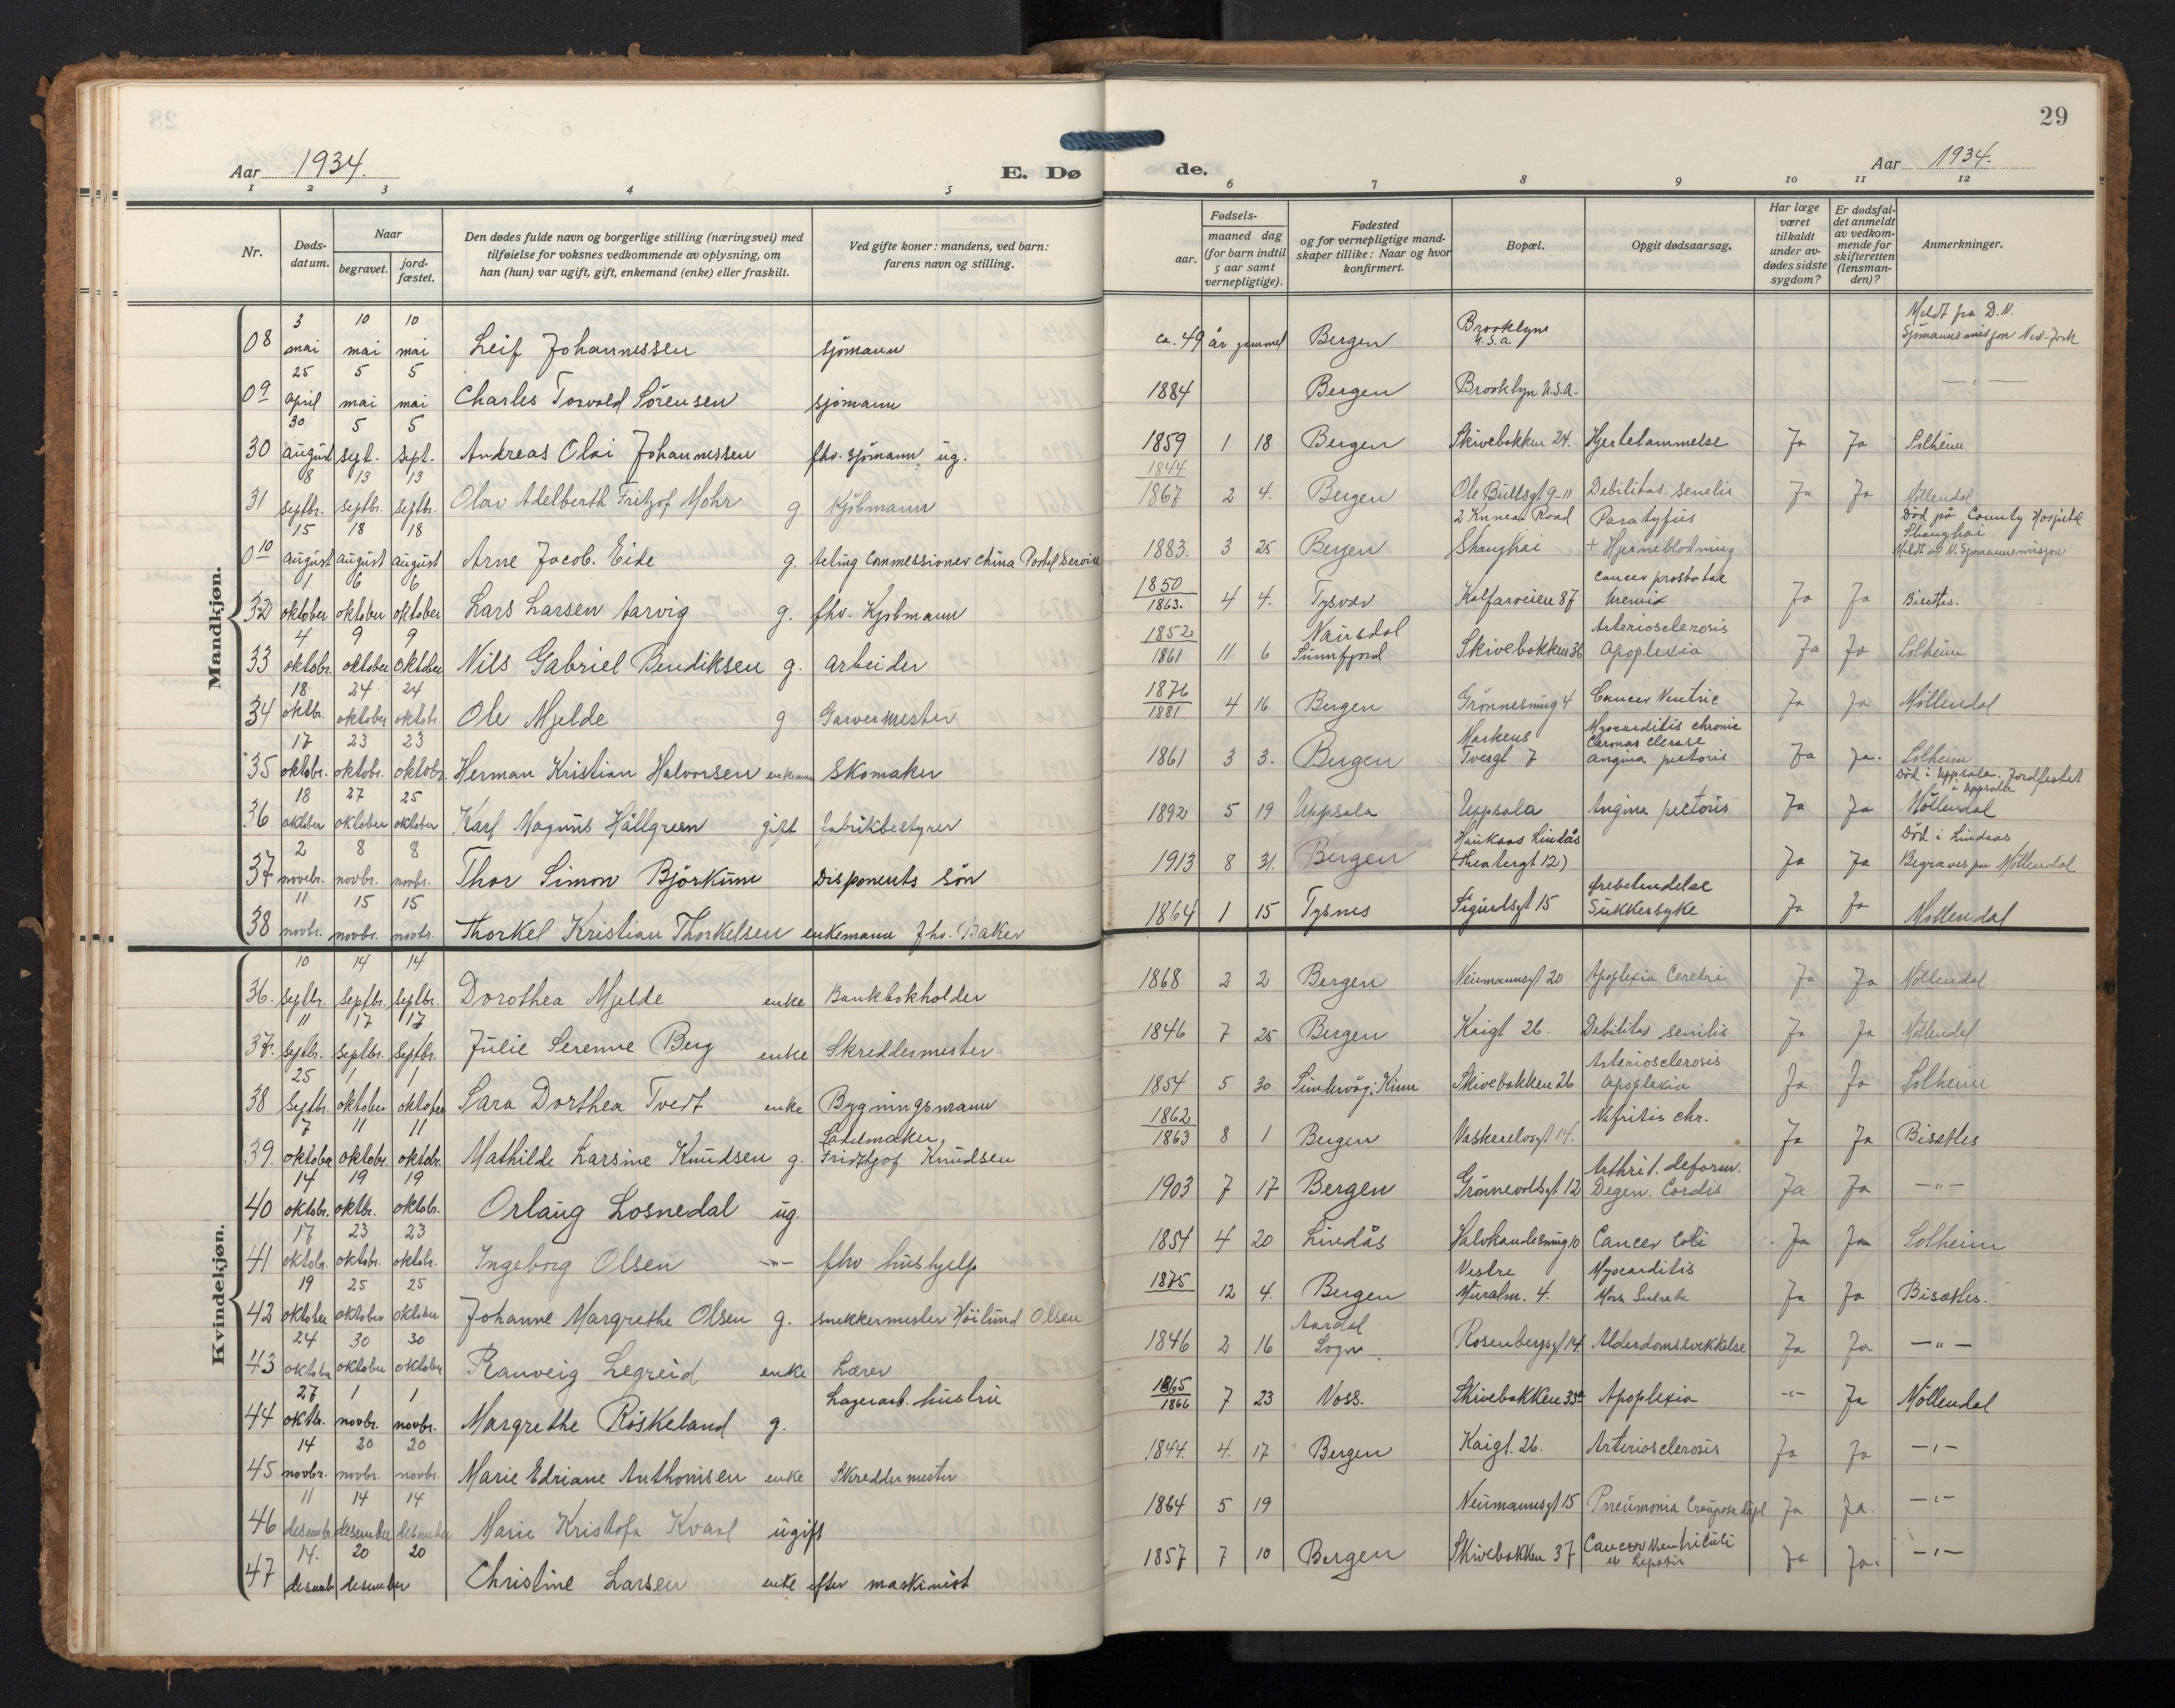 29
Aar 1934. E. Dø de. Aar 1934.
1 2 3 4 5 6 7 8 9 10 11 12
Nr. Døds-datum. Naar begravet. jord-fæstet. Den dødes fulde navn og borgerlige stilling (næringsvei) med tilføielse for voksnes vedkommende av oplysning, om han (hun) var ugift, gift, enkemand (enke) eller fraskilt. Ved gifte koner: mandens, ved barn: farens navn og stilling. Fødsels- aar. maaned dag (for barn indtil 5 aar samt vernepligtige). Fødested og for vernepligtige mand-skaper tillike: Naar og hvor konfirmert. Bopæl. Opgit dødsaarsag. Har læge været tilkaldt under av-dødes sidste sygdom? Er dødsfal-det anmeldt av vedkom-mende for skifteretten (lensman-den)? Anmerkninger.
Mandkjøn.
08 3 mai 10 mai 10 mai Leif Johannessen sjömann ca. 49 år gammel Bergen Brooklyn U.S.a. Meldt fra D.N. Sjömannsmisjon New-York
09 25 april 5 mai 5 mai Charles Torvald Sörensen sjömann 1884 Bergen Brooklyn U.S.a. — " —
30 30 august 5 sept. 5 sept. Andreas Olai Johannessen fhv. sjömann ug. 1859 1 18 Bergen Skivebakken 24. Hjertelammelse Ja Ja Solheim
31 8 septbr. 13 septbr. 13 septbr. Olav Adelberth Fritzof Mohr g. Kjöbmann 1844 1867 2 4. Bergen Ole Bullsgt 9-11 Debilitas senelis Ja Ja Möllendal
010 15 august 18 august 18 august Arne Jacob Eide g. acting Commessioner China Postal Service 1883. 3 25 Bergen Road Shanghai Paratyfus + Hjerneblödning Död på County Hospital Shanghai Meldt av N. Sjömannsmisjon
32 1 oktober 6 oktober 6 oktober Lars Larsen Aarvig g. fhv. Kjöbmann 1850 1863. 4 4. Tysvær Kalfarveien 87 Cancer prostatae Uremia Ja Ja Bisettes.
33 4 oktobr. 9 oktober 9 oktober Nils Gabriel Bendiksen g. arbeider 1852 1861 11 6 Sunnfjord Skivebakken 36 Arteriosclerosis Apoplexia Ja Ja Solheim
34 18 oktbr. 24 oktober 24 oktobr. Ole Mjelde g Garvermester 1876 1881 4 16 Bergen Grönnesmug 4 Cancer Ventric Ja Ja Möllendal
35 17 oktobr. 23 oktobr. 23 oktobr. Herman Kristian Halvorsen enkemann Skomaker 1861 3 3. Bergen Markens Tvergt 7 Myocarditis chronic angina pectoris Ja Ja. Solheim
36 18 oktober 27 oktober 25 oktober Karl Magnus Hällgreen gift fabrikbestyrer 1892 5 19 Uppsala Uppsala Angina pectoris Ja Ja Död i Uppsala. Jordfestet i Uppsala Möllendal
37 2 novebr. 8 novbr. 8 novbr. Thor Simon Björkum Disponents sön 1913 8 31. Bergen Haukaas Lindås (Theatergt 12) Ja Ja Död i Lindaas Begraves paa Möllendal
38 11 novbr. 15 novbr. 15 novbr. Thorkel Kristian Thorkelsen enkemann fhv. Baker 1864 1 15 Tysnes Sigurdsgt 15 Sukkersyke Ja Ja Möllendal
Kvindekjøn.
36. 10 septbr. 14 septbr. 14 septbr. Dorothea Mjelde enke Bankbokholder 1868 2 2 Bergen Neumannsgt 20 Apoplexia Cerebri Ja Ja Möllendal
37. 11 septbr. 17 septbr. 17 septbr. Julie Serenne Berg enke Skreddermester 1846 7 25 Bergen Kaigt 26. Debilitas senilis Ja Ja Möllendal
38 25 septbr. 1 oktober 1 oktober Sara Dorthea Tvedt enke Bygningsmann 1854 5 30 Kinn Skivebakken 26 Arteriosclerosis Apoplexia Ja Ja Solheim
39. 7 oktober 11 oktobr. 11 oktobr. Mathilde Larsine Knudsen g. Salemaker Fridthjof Knudsen 1862 1863 8 1 Bergen Vaskerelvsgt 14. Nefritis chr. Ja Ja Bisettes
40 14 oktobr. 19 oktbr. 19 oktobr. Orlaug Losnedal ug. 1903 7 17 Bergen Grönnevoldsgt 12 Arthrit. deform. Degen. Cordis Ja Ja — " —
41 17 oktobr. 23 oktobr. 23 oktobr. Ingeborg Olsen — " — fhv hushjelp 1854 4 20 Lindås Halvkandesmug 10 Cancer Coli Ja Ja Solheim
42 19 oktober 25 oktober 25 oktober Johanne Margrethe Olsen g. snekkermester Höilund Olsen 1875 12 4. Bergen Vestre Muralm. 4. Myocarditis Mors Subita Ja Ja Bisettes.
43 24 oktober 30 oktober 30 oktober Ranveig Legreid enke Lærer 1846 2 16 Aardal Sogn Rosenbergsgt 14 Alderdomssvekkelse Ja Ja — " —
44 27 oktbr. 1 novbr. 1 novbr. Margrethe Röskeland g. Lagerarb. hustru 1865 1866 7 23 Voss. Skivebakken 33a Apoplexia — " — Ja Möllendal
45 14 novbr. 20 novbr. 20 novbr. Marie Edriane Anthonisen enke Skreddermester 1844. 4. 17 Bergen Kaigt. 26. Arteriosclerosis Ja Ja — " —
46 11 desembr. 14 desember 14 desember Marie Kristofa Kvaal ugift 1864 5 19 Neumannsgt 15 Pneumonia Crouposa dupl Ja Ja. — " —
47 14. desemb 20 desember 20 Christine Larsen enke efter maskinist 1857 7 10 Bergen Skivebakken 37 Cancer Ventriculi Ja Ja. — " —